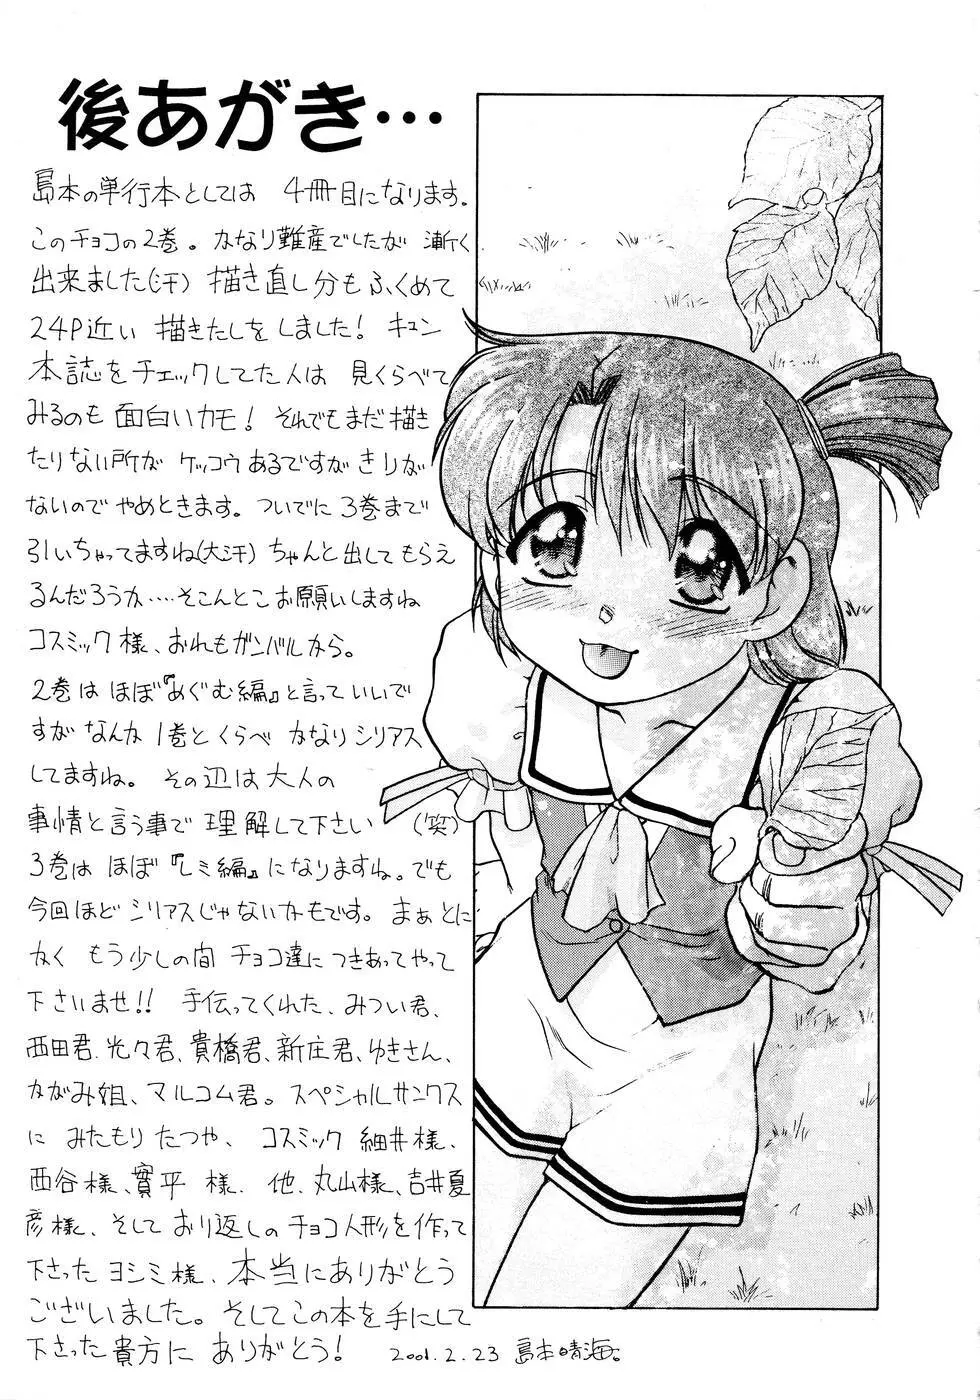 後あがき…
島本の単行本としては 4冊目になります。
このチョコの2巻。かなり難産でしたが 漸く
出来ました(汗) 描き直し分もふくめて
24P近い 描きたしをしました! キュン
本誌をチェックしてた人は 見くらべて
みるのも 面白いカモ! それでもまだ描き
たりない所が ケッコウあるですがきりが
ないのでやめときます。ついでに 3巻まで
引いちゃってますね(大汗) ちゃんと出してもらえ
るんだろうか‥‥そこんとこお願いしますね
コスミック様、おれもガンバルから。
2巻は ほぼ『めぐむ編』と言っていいで
すがなんか 1巻とくらべ かなりシリアス
してますね。その辺は大人の
事情と言う事で 理解して下さい (笑)
3巻は ほぼ『レミ編』になりますね。でも
今回ほど シリアスじゃないかもです。まぁとに
かく もう少しの間 チョコ達に つきあってやって
下さいませ!! 手伝ってくれた、みつい君、
西田君、光々君、貴橋君、新庄君、ゆきさん、
かがみ姐、マルコム君。スペシャルサンクス
に みたもりたつや、コスミック 細井様、
西谷様、實平 様、他、丸山様、吉井夏
彦様、そして おり返しの チョコ人形を作って
下さった ヨシミ様、本当にありがとう
ございました。そしてこの本を手にして
下さった貴方に ありがとう!
2001.2.23 島本晴海。